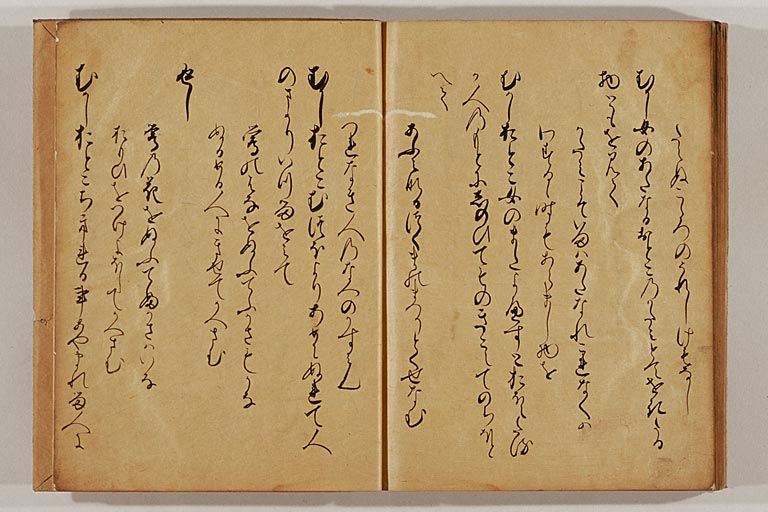 たえぬこゝろのうれしけもなし
むかし女のあたなるおとこのかたみとてをきたる
物ともを見て
かたみこそ今はあたなれこれなくは
わするゝ時もあらまし物を
むかしおとこ女のまたよへすとおほえたる
か人の御もとにしのひてものきこえてのちほと
へて
あふみなるつくまのまつりとくせなむ
つれなき人のなへのかす見ん
むかしおとこむめつほよりあめにぬれて人
のまかりいつるを見て
鶯の花をぬふてふかさもかな
ぬるめる人にきせてかへさむ
返し
鶯の花をぬふてふかさはいな
おもひをつけよほしてかへさむ
むかしおとこちきれる事あやまれる人に